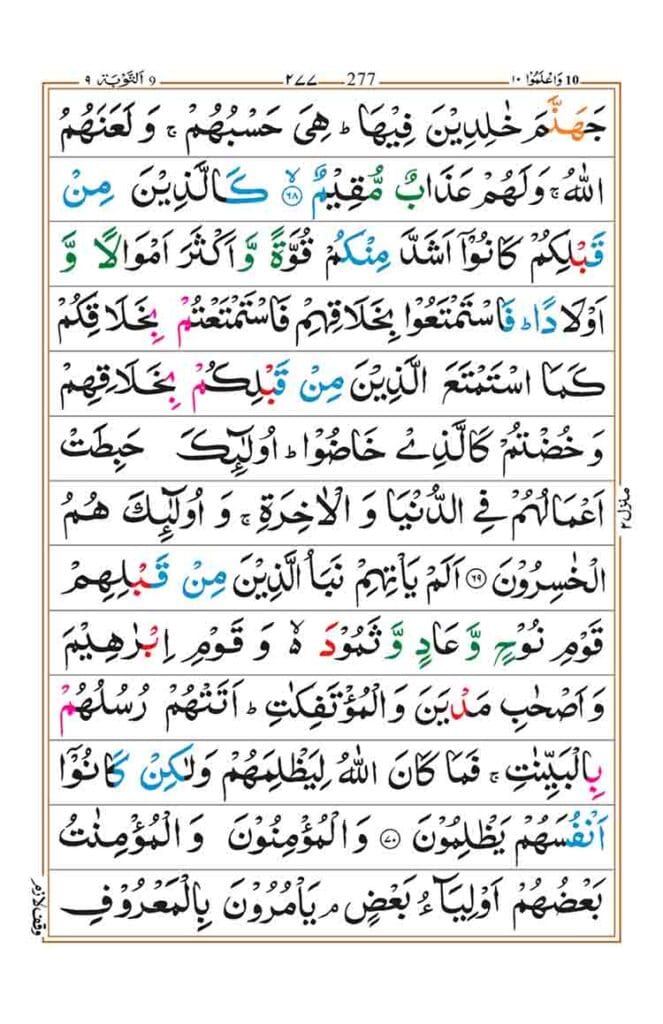 10 وَاعْلَمُوْٓا ١٠ 277 ٢٧٧ 9 اَلتَّوْبَة ٩
جَهَنَّمَ خٰلِدِيْنَ فِيْهَا ؕ هِيَ حَسْبُهُمْ ۚ وَ لَعَنَهُمُ
اللّٰهُ ۚ وَلَهُمْ عَذَابٌ مُّقِيْمٌ ۙ‏﴿٦٨﴾ كَالَّذِيْنَ مِنْ
قَبْلِكُمْ كَانُوْۤا اَشَدَّ مِنْكُمْ قُوَّةً وَّ اَكْثَرَ اَمْوَالًا وَّ
اَوْلَادًا ؕ فَاسْتَمْتَعُوْا بِخَلَاقِهِمْ فَاسْتَمْتَعْتُمْ بِخَلَاقِكُمْ
كَمَا اسْتَمْتَعَ الَّذِيْنَ مِنْ قَبْلِكُمْ بِخَلَاقِهِمْ
وَ خُضْتُمْ كَالَّذِيْ خَاضُوْا ؕ اُولٰٓئِكَ حَبِطَتْ
اَعْمَالُهُمْ فِي الدُّنْيَا وَ الْاٰخِرَةِ ۚ وَ اُولٰٓئِكَ هُمُ
الْخٰسِرُوْنَ ﴿٦٩﴾ اَلَمْ يَاْتِهِمْ نَبَاُ الَّذِيْنَ مِنْ قَبْلِهِمْ
قَوْمِ نُوْحٍ وَّ عَادٍ وَّ ثَمُوْدَ ۙ۬ وَ قَوْمِ اِبْرٰهِيْمَ
وَ اَصْحٰبِ مَدْيَنَ وَ الْمُؤْتَفِكٰتِ ؕ اَتَتْهُمْ رُسُلُهُمْ
بِالْبَيِّنٰتِ ۚ فَمَا كَانَ اللّٰهُ لِيَظْلِمَهُمْ وَلٰكِنْ كَانُوْۤا
اَنْفُسَهُمْ يَظْلِمُوْنَ ﴿٧٠﴾ وَ الْمُؤْمِنُوْنَ وَ الْمُؤْمِنٰتُ
بَعْضُهُمْ اَوْلِيَآءُ بَعْضٍ ۘ يَاْمُرُوْنَ بِالْمَعْرُوْفِ
منزل ٢
وقف لازم